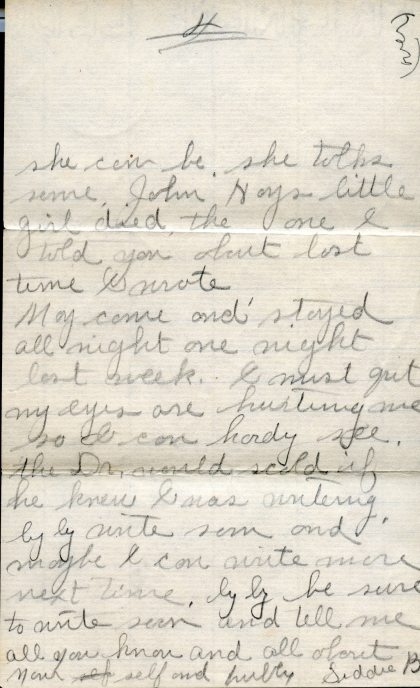 4
she can be, she talks
some, John Hays little
girl died, the one I
told you obut last
time I wrote
May come and stayed
all night one night
last week. I must quit
my eyes are hurting me
so I can hardy see.
the Dr. would scold if
he knew I was writing
by by write soon and
maybe I can write more
next time, by by be sure
to write soon and tell me
all you know and all about
your self and hubby Siddie B